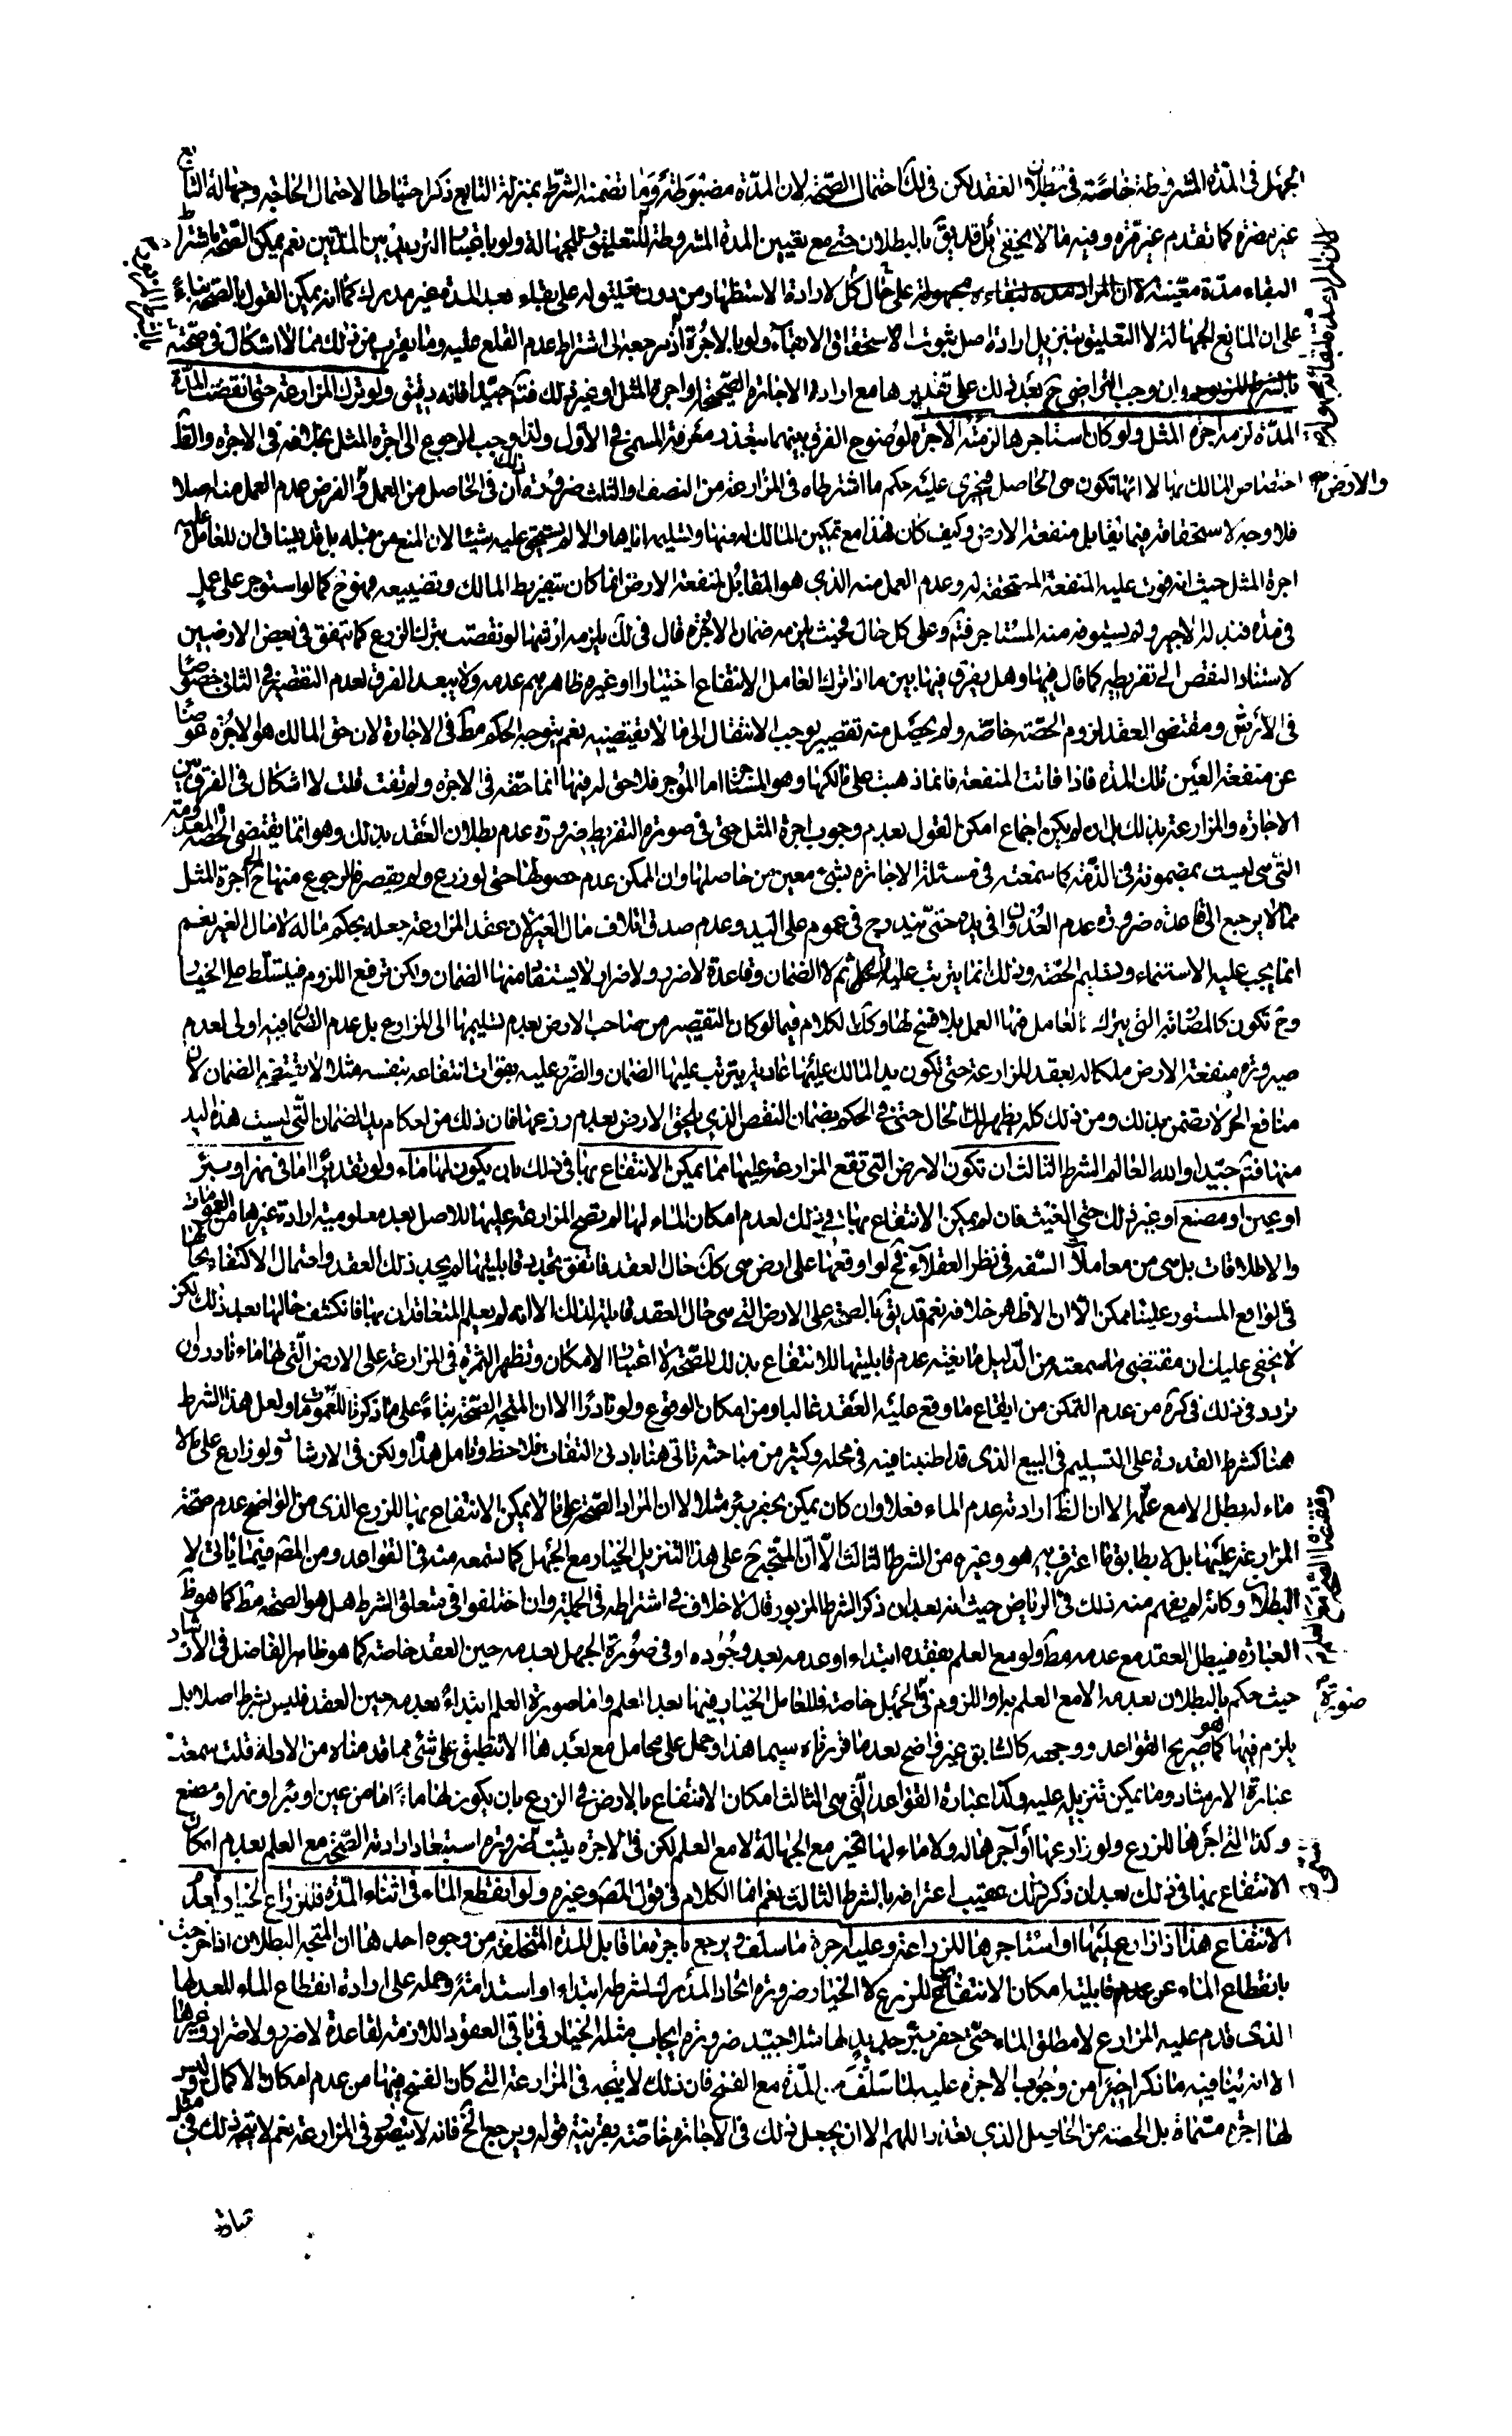 الجهل فى المدة المشروطة خاصة فى بطلان العقد لكن فى لك احتمال الصحة لان المدة مضبوطة وما تضمنه الشرط بمنزلة التابع ذكر احتياطا لاحتمال الحاجة وجهالة التابع
غير مضرة كما تقدم غير مرة وفيه ما لا يخفى بل قد يق بالبطلان حتى مع تعيين المدة المشروطة للتعليق للجهالة ولو باعتبار الترديد بين المدتين نعم يمكن الصحة باشتراط
البقاء مدة معينة لان المراد مدة لبقاءه مجهولة على كل حال لارادة الاستظهار من دون تعليق له على بقاء بعد المدة غير مدرك كما انه يمكن القول بالصحة بناء
على ان المانع الجهالة لا التعليق بتنزيل ارادة اصل ثبوت الاستحقاق الابقاء ولو بالاجرة اذ مرجعه الى اشتراط عدم القلع عليه وما يقرب من ذلك مما لا اشكال فى صحته
بالشرط المزبور وان وجب التراضى ح بعد ذلك على تقديرها مع ارادة الاجارة الصحيحة او اجرة المثل او غير ذلك فتأمل جيدا فانه دقيق ولو ترك المزارعة حتى انقضت المدة
المدة لزمه اجرة المثل ولو كان استاجرها لزمته الاجرة لوضوح الفرق بينهما بتعذر معرفة المسمى فى الاول ولذا وجب الرجوع الى اجرة المثل بخلافه فى الاجرة والظ
احتصاص المالك بها لا انها تكون هى الحاصل فيجرى عليه حكم ما اشترطاه فى المزارعة من النصف او الثلث ضرورة ان ذلك فى الحاصل من العمل والفرض عدم العمل منه اصلا
فلا وجه لاستحقاقه فيما يقابل منفعة الارض وكيف كان هذا مع تمكين المالك له منها وتسليمه اياها والا لم يستحق عليه شيئا لان المنع من قبله بل قد يينافى ان للعامل عليه
اجرة المثل حيث انه فوت عليه المنفعة المستحقة له وعدم العمل منه الذى هو المقابل لمنفعة الارض انما كان بتفريط المالك وتضييعه فهو ح كما لو استوجر على عمل
فى مدة فبذله الاجير ولم يستوفه منه المستاجر فتأمل وعلى كل حال فحيث يلزمه ضمان الاجرة قال فى لك يلزمه ارشها لو نقصت بترك الزرع كما يتفق فى بعض الارضين
لاستناد النقص الى تفريطه كما قال فيها وهل يفرق فيها بين ما اذا ترك العامل الانتفاع اختيارا او غيره ظاهرهم عدمه ولا يبعد الفرق لعدم التقصير فى الثانى خصوصا
فى الارش ومقتضى العقد لزوم الحصة خاصة ولم يحصل منه تقصير يوجب الانتقال الى ما لا يقتضيه نعم يتوجه الحكم مط فى الاجارة لان حق المالك هو الاجرة عوضا
عن منفعة العين تلك المدة فاذا فاتت المنفعة فانما ذهبت على مالكها وهو المستاجر اما المؤجر فلا حق له فيها انما حقه فى الاجرة ولم تفت قلت لا اشكال فى الفرق بين
الاجارة والمزارعة بذلك بل ان لم يكن اجماع امكن القول بعدم وجوب اجرة المثل حتى فى صورة التفريط ضرورة عدم بطلان العقد بذلك وهو انما يقتضى الحصة المعدومة
التى هى ليست بمضمونة فى الذمة كما سمعته فى مسئلة الاجارة بشىء معين من حاصلها وان الممكن عدم حصولها حتى لو زرع ولم يقصر فالرجوع منها ح الى اجرة المثل
مما لا يرجع الى قاعدة ضرورة عدم العدوان فى يده حتى يندرج فى عموم على اليد وعدم صدق اتلاف مال الغير لان عقد المزارعة جعله بحكم ماله لا مال الغير نعم
انما يجب عليه الاستنماء وتسليم الحصة وذلك انما يترتب عليه الاثم لا الضمان وقاعدة لاضرر ولا ضرار لا يستفاد منها الضمان ولكن ترفع اللزوم فيتسلط على الخيار
وح تكون كالمضاربة التى يترك العامل فيها العمل بلا فسخ لها وكذا الكلام فيما لو كان التقصير من صاحب الارض بعدم تسليمها الى المزارع بل عدم الضمان فيه اولى لعدم
صيرورة منفعة الارض ملكا له بعقد المزارعة حتى تكون يد المالك عليها عادية يترتب عليها الضمان والضرر عليه بفوات انتفاعه بنفسه مثلا لا يقتضى الضمان لان
منافع الحر لا تضمن بذلك ومن ذلك كله يظهر لك الحال حتى فى الحكم بضمان النقص الذى يلحق الارض بعدم زرعها فان ذلك من احكام يد الضمان التى ليست هذه اليد
منها فتأمل جيدا والله العالم الشرط الثالث ان تكون الارض التى تقع المزارعة عليها مما يمكن الانتفاع بها فى ذلك بان يكون لها ماء ولو تقديرا اما فى نهر او بئر
او عين او مصنع او غير ذلك حتى الغيث فان لم يمكن الانتفاع بها فى ذلك لعدم امكان الماء لها لم تصح المزارعة عليها للاصل بعد معلومية ارادة غيرها من العمومات
والاطلاقات بل هى من معاملات السفه فى نظر العقلاء فح لو اوقعها على ارض هى كك حال العقد فاتفق تجدد قابليتها لم يجد ذلك العقد واحتمال الاكتفاء بحالها
فى الواقع المستور علينا ممكن الا ان الاظهر خلافه نعم قد يق بالصحة على الارض التى هى حال العقد قابلة لذلك الا انه لم يعلم المتعاقدان بها فانكشف حالها بعد ذلك لكن
لا يخفى عليك ان مقتضى ما سمعته من الدليل مانعية عدم قابليتها للانتفاع بذلك للصحة لا اعتبار الامكان وتظهر الثمرة فى المزارعة على الارض التى لها ماء نادر وان
تردد فى ذلك فى كرة من عدم التمكن من ايقاع ما وقع عليه العقد غالبا ومن امكان الوقوع ولو نادرا الا ان المتجه الصحة بناء على ما ذكرنا للعمومات ولعل هذا الشرط
هنا كشرط القدرة على التسليم فى البيع الذى قد اطنبنا فيه فى محله وكثير من مباحثه تاتى هنا بادنى التفات فلاحظ وتامل هذا ولكن فى الارشاد ولو زارع على ما لا
ماء له بطل الا مع علمه الا ان الظ ارادته عدم الماء فعلا وان كان يمكن بحفر بئر مثلا لا ان المراد الصحة على ما لا يمكن الانتفاع بها للزرع الذى من الواضح عدم صحة
المزارعة عليها بل لا يطابق ما اعترف به هو وغيره من الشرط الثالث الا ان المتجه ح على هذا التنزيل الخيار مع الجهل كما ستسمعه منه فى القواعد ومن المصن فيما ياتى لا
البطلان وكانه لم يفهم منه ذلك فى الرياض حيث انه بعد ان ذكر الشرط المزبور قال لا خلاف فى اشتراطه فى الجملة وان اختلفوا فى متعلق الشرط هل هو الصحة مط كما هو ظ
العبارة فيبطل العقد مع عدمه مط ولو مع العلم بفقده ابتداء او عدمه بعد وجوده او فى صورة الجهل بعدمه حين العقد خاصة كما هو ظاهر الفاضل فى الارشاد
حيث حكم بالبطلان بعدمه الا مع العلم به او اللزوم فى صورة الجهل خاصة فللعامل الخيار فيها بعد العلم واما صورة العلم ابتداء بعدمه حين العقد فليس بشرط اصلا بل
يلزم فيها كما هو صريح القواعد ووجهه كالسابق غير واضح بعدما قررناه سيما هذا وحمل على محامل مع بعدها لا تنطبق على شىء مما قدمناه من الادلة قلت سمعت
عبارة الارشاد وما يمكن تنزيله عليه وكذا عبارة القواعد التى هى الثالث امكان الانتفاع بالارض فى الزرع بان يكون لها ماء اما من عين او بئر او نهر او مصنع
وكذا التى اجرها للزرع ولو زارعها او آجرها له ولا ماء لها تخير مع الجهالة لا مع العلم لكن فى الاجرة يثبت ضرورة استبعاد ارادته الصحة مع العلم بعدم امكان
الانتفاع بها فى ذلك بعد ان ذكر ذلك عقيب اعترافه بالشرط الثالث نعم انما الكلام فى قول المصن وغيره ولو انقطع الماء فى اثناء المدة فللمزارع الخيار لعدم
الانتفاع هذا اذا زارع عليها او استاجرها للزراعة وعليه اجرة ما سلف ويرجع باجرة ما قابل المدة المتخلفة من وجوه احدها ان المتجه البطلان اذا خرجت
بانقطاع الماء عن قابلية امكان الانتفاع للزرع لا الخيار ضرورة اتحاد المدرك لشرطه ابتداء او استدامة وحمله على ارادة انقطاع الماء المعد لها
الذى قدم عليه المزارع لا مطلق الماء حتى حفر بئر جديد لها مثلا جيد ضرورة ايجاب مثله الخيار فى باقى العقود اللازمة لقاعدة لا ضرر ولا ضرار وغيرها
الا انه ينافيه ما ذكر اخيرا من وجوب الاجرة عليه لما سلف من المدة مع الفسخ فان ذلك لا يتجه فى المزارعة التى كان الفسخ فيها من عدم امكان الاكمال وليس
لها اجرة مسماة بل الحصة من الحاصل الذى تعذر اللهم الا ان يجعل ذلك فى الاجارة خاصة بقرينة قوله ويرجع الخ فانه لا يتصور فى المزارعة نعم لا يتجه ذلك فى مثل